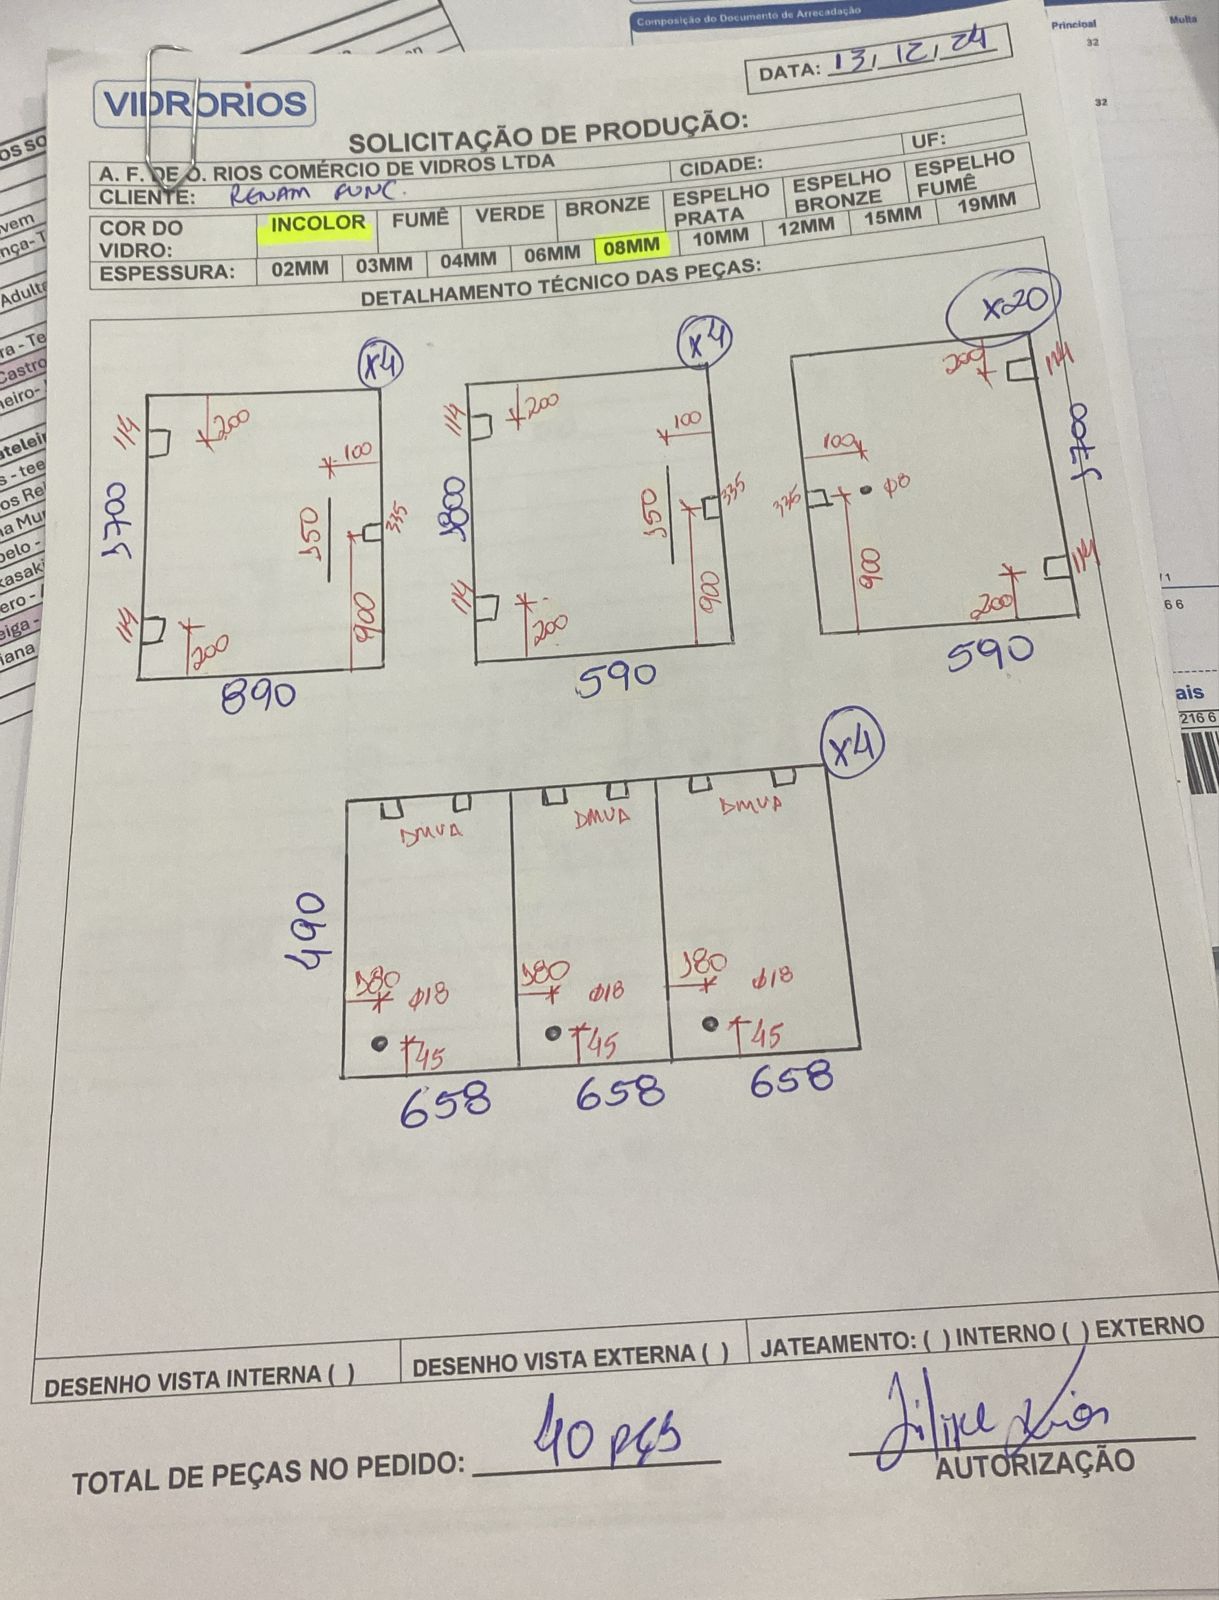 Composição do Documento de Arrecadação
Principal
Multa
32
32
DATA: 13, 12, 24
VIDRORIOS
SOLICITAÇÃO DE PRODUÇÃO:
A. F. DE O. RIOS COMÉRCIO DE VIDROS LTDA CIDADE: UF:
CLIENTE: RENAM FUNC.
COR DO VIDRO: INCOLOR FUMÊ VERDE BRONZE ESPELHO PRATA ESPELHO BRONZE ESPELHO FUMÊ
ESPESSURA: 02MM 03MM 04MM 06MM 08MM 10MM 12MM 15MM 19MM
DETALHAMENTO TÉCNICO DAS PEÇAS:
X4
114
200
100
1700
150
335
114
200
900
890
X4
114
200
100
1800
150
335
114
200
900
590
X20
200
114
100
1700
335
Φ8
900
114
200
590
X4
DMVA DMVA DMVA
490
180 Φ18 180 Φ18 180 Φ18
45 45 45
658 658 658
DESENHO VISTA INTERNA ( ) DESENHO VISTA EXTERNA ( ) JATEAMENTO: ( ) INTERNO ( ) EXTERNO
TOTAL DE PEÇAS NO PEDIDO: 40 PÇS
Filipe Rios
AUTORIZAÇÃO
ais
216 6